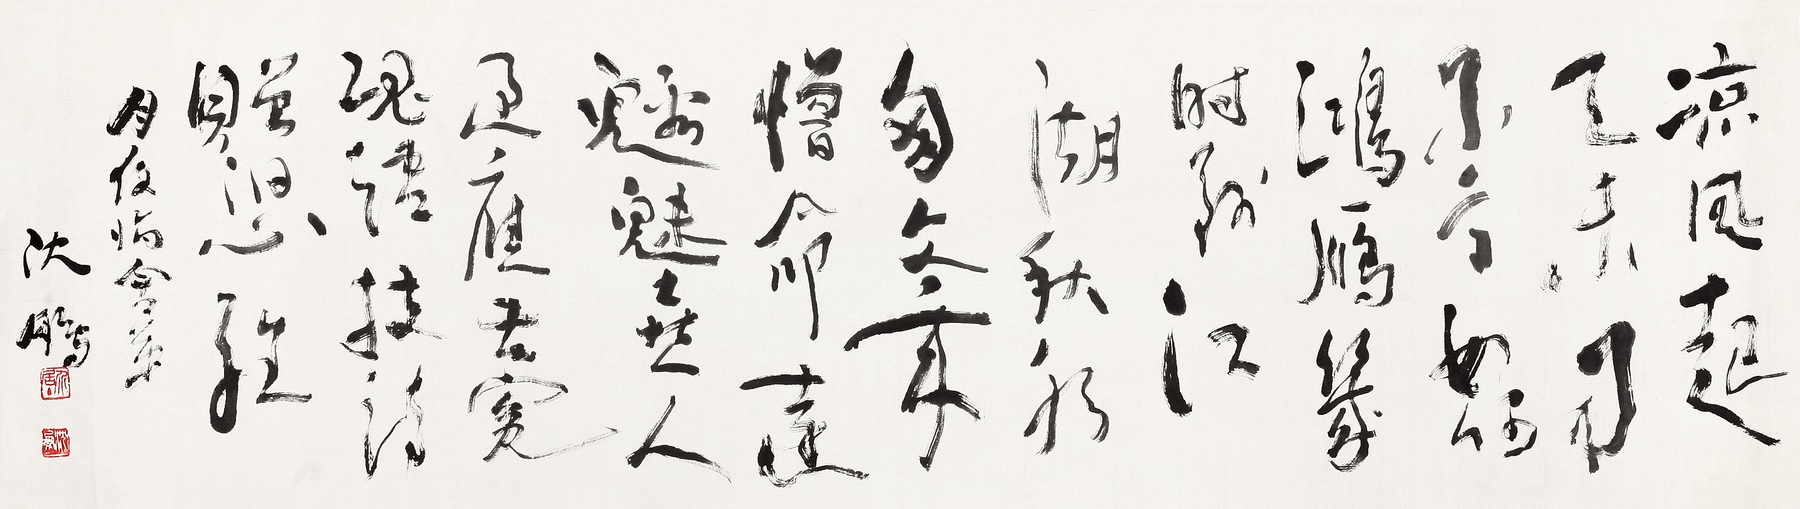 涼風起
天末君
子意如何
鴻鴈幾
時到江
湖秋水
多文章
憎命達
魑魅喜人
過應共冤
魂語投詩
贈汨羅
沈鵬
介居
沈鵬